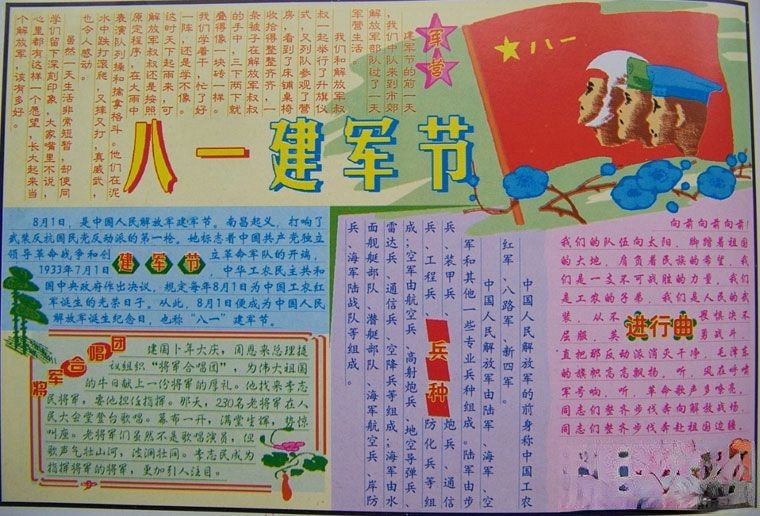 八一
军营
建军节的前一天
，我们中队来到市郊
解放军部队过了一天
军营生活。
我们和解放军叔
叔一起举行了升旗仪
式，又列队参观了营
房，看到了床铺桌椅
收拾得整整齐齐，一
条被子在解放军叔叔
的手中，三下两下就
叠得像一块砖一样。
我们学着干，忙了好
一阵，还是学不像。
这时天下起雨来，可
解放军叔叔还是按照
原定程序，在大雨中
表演队列操和擒拿格斗。他们在泥
水中跌打滚爬，又摔又打，真威武，
也令人感动。
虽然一天生活非常短暂，却使同
学们留下深刻印象，大家嘴里不说，
心里都有这样一个愿望，长大起来当
个解放军，该有多好。
八一建军节
8月1日，是中国人民解放军建军节。南昌起义，打响了
武装反抗国民党反动派的第一枪。她标志着中国共产党独立
领导革命战争和创 立革命军队的开端，
1933年7月1日 建军节 中华工农民主共和
国中央政府作出决议，规定每年8月1日为中国工农红
军诞生的光荣日子。从此，8月1日便成为中国人民
解放军诞生纪念日，也称“八一”建军节。
将军合唱团
建国卜年大庆，周恩来总理提
议组织“将军合唱团”，为伟大祖国
的生日献上一份将军的厚礼。他找来李志
民将军，要他担任指挥。那天，230名老将军在人
民大会堂登台歌唱。幕布一升，满堂生辉，掌惊
叫座。老将军们虽然不是歌唱演员，但
歌声气壮山河，波澜壮阔。李志民成为
指挥将军的将军，更加引人注目。
兵种
中国人民解放军的前身称中国工农
红军、八路军、新四军。
中国人民解放军由陆军、海军、空
军和其他一些专业兵种组成。陆军由步
兵、装甲兵、 炮兵、通信
兵、工程兵、 防化兵等组
成；空军由航空兵、高射炮兵、地空导弹兵、
雷达兵、通信兵、空降兵等组成；海军由水
面舰艇部队、潜艇部队、海军航空兵、岸防
兵、海军陆战队等组成。
进行曲
向前向前向前！
我们的队伍向太阳，脚踏着祖国
的大地，肩负着民族的希望，我
们是一支不可战胜的力量，我们
是工农的子弟，我们是人民的武
装，从不 畏惧决不
屈服，英 勇战斗，
直把那反动派消灭干净，毛泽东
的旗帜高高飘扬。听，风在呼啸
军号响，听，革命歌声多嘹亮，
同志们整齐步伐奔向解放战场，
同志们整齐步伐奔赴祖国边疆，